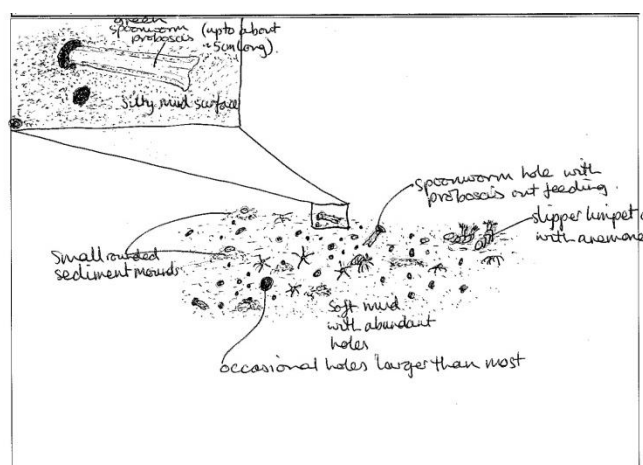 green
spoonworm
proboscis
(up to about
~5cm long).
silty mud surface
spoonworm hole with
proboscis out feeding.
slipper limpet
with anemone
Small rounded
sediment mounds
Soft mud
with abundant
holes
occasional holes larger than most